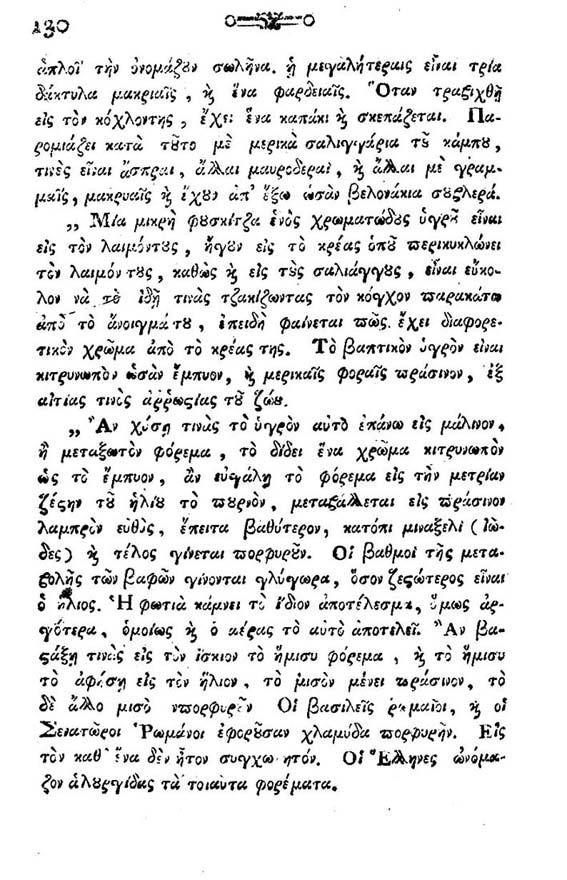 130
ἁπλοῖ τὴν ὀνομάζȣν σωλῆνα. ᾑ μεγαλήτεραις εἶναι τρία
δάκτυλα μακριαῖς, ϗ ἕνα φαρδειαῖς. Ὅταν τραβιχθῇ
εἰς τὸν κόχλοντης, ἔχει ἕνα καπάκι ϗ σκεπάζεται. Πα-
ρομιάζει κατὰ τȣ͂το μὲ μερικὰ σαλιγγάρια τȣ͂ κάμπȣ,
τινὲς εἶναι ἄσπραι, ἄλλαι μαυροδεραὶ, ϗ ἄλλαι μὲ γραμ-
μαῖς, μακρυαῖς ϗ ἔχȣν ἀπ' ἔξω ὡσὰν βελονάκια σȣβλερά.
„ Μία μικρὴ φȣσκίτζα ἑνὸς χρωματώδȣς ὑγρȣ͂ εἶναι
εἰς τὸν λαιμόντȣς, ἤγȣν εἰς τὸ κρέας ὁπȣ̃ περικυκλώνει
τὸν λαιμόν τȣς, καθὼς ϗ εἰς τȣ̀ς σαλιάγγȣς, εἶναι εὔκο-
λον νὰ τὸ ἰδῇ τινὰς τζακίζωντας τὸν κόγχον παρακάτω
ἀπὸ τὸ ἄνοιγμά τȣ, ἐπειδὴ φαίνεται πῶς ἔχει διαφορε-
τικὸν χρῶμα ἀπὸ τὸ κρέας της. Τὸ βαπτικὸν ὑγρὸν εἶναι
κιτρυνωπὸν ὡσὰν ἔμπυον, ϗ μερικαῖς φοραῖς πράσινον, ἐξ
αἰτίας τινὸς ἀρρωςίας τȣ͂ ζώȣ.
„ Ἂν χύσῃ τινὰς τὸ ὑγρὸν αὐτὸ ἐπάνω εἰς μάλινον,
ἢ μεταξωτὸν φόρεμα, τὸ δίδει ἕνα χρῶμα κιτρυνωπὸν
ὡς τὸ ἔμπυον, ἂν εὐγάλῃ τὸ φόρεμα εἰς τὴν μετρίαν
ζέςην τȣ͂ ἡλίȣ τὸ πȣρνὸν, μεταβάλλεται εἰς πράσινον
λαμπρὸν εὐθὺς, ἔπειτα βαθύτερον, κατόπι μιναξελὶ (Ἰώ-
δες) ϗ τέλος γίνεται πορφυρȣ͂ν. Οἱ βαθμοὶ τῆς μετα-
βολῆς τῶν βαφῶν γίνονται γλύγωρα, ὅσον ζεςώτερος εἶναι
ὁ ἥλιος. Ἡ φωτιὰ κάμνει τὸ ἴδιον ἀποτέλεσμα, ὅμως ἀρ-
γότερα, ὁμοίως ϗ ὁ ἀέρας τὸ αὐτὸ ἀποτελεῖ. Ἂν βα-
ςάξῃ τινὰς εἰς τὸν ἴσκιον τὸ ἥμισυ φόρεμα, ϗ τὸ ἥμισυ
τὸ ἀφήσῃ εἰς τὸν ἥλιον, τὸ μισὸν μένει πράσινον, τὸ
δὲ ἄλλο μισὸ πορφυρȣ͂ν Οἱ βασιλεῖς ῥωμαῖοι, ϗ οἱ
Σενατῶροι Ῥωμάνοι ἐφορȣ͂σαν χλαμύδα πορφυρῆν. Εἰς
τὸν καθ' ἕνα δὲν ἦτον συγχωρητόν. Οἱ Ἕλληνες ὠνόμα-
ζον ἁλȣργίδας τὰ τοιαῦτα φορέματα.